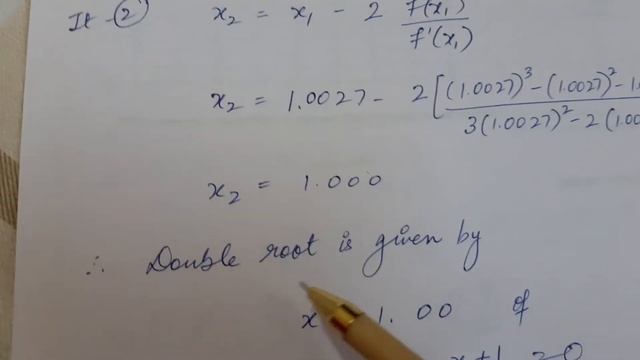 It - (2) x₂ = x₁ - 2 f(x₁) / f'(x₁)
x₂ = 1.0027 - 2 [(1.0027)³ - (1.0027)² - 1. / 3(1.0027)² - 2(1.00
x₂ = 1.000
∴ Double root is given by
x 1.00 of
x+1 = 0